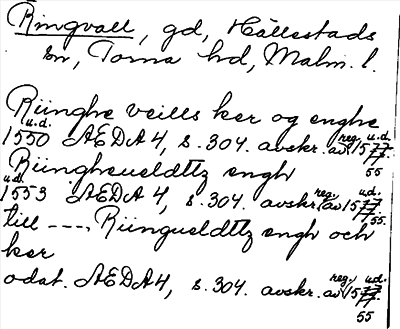 Ringvall, gd, Hällestads
sn, Torna hd, Malm. l.
Riinghe veills ker og enghe
u.d. 1550 AEDA4, s. 304. avskr. av reg. u.d. 1577 55
Riingheueldttz engh
u.d. 1553 AEDA4, s. 304. avskr. av reg. u.d. 1577 55.
till ----, Riingueldttz engh och
ker
odat. AEDA4, s. 304. avskr. av reg. u.d. 1577 55